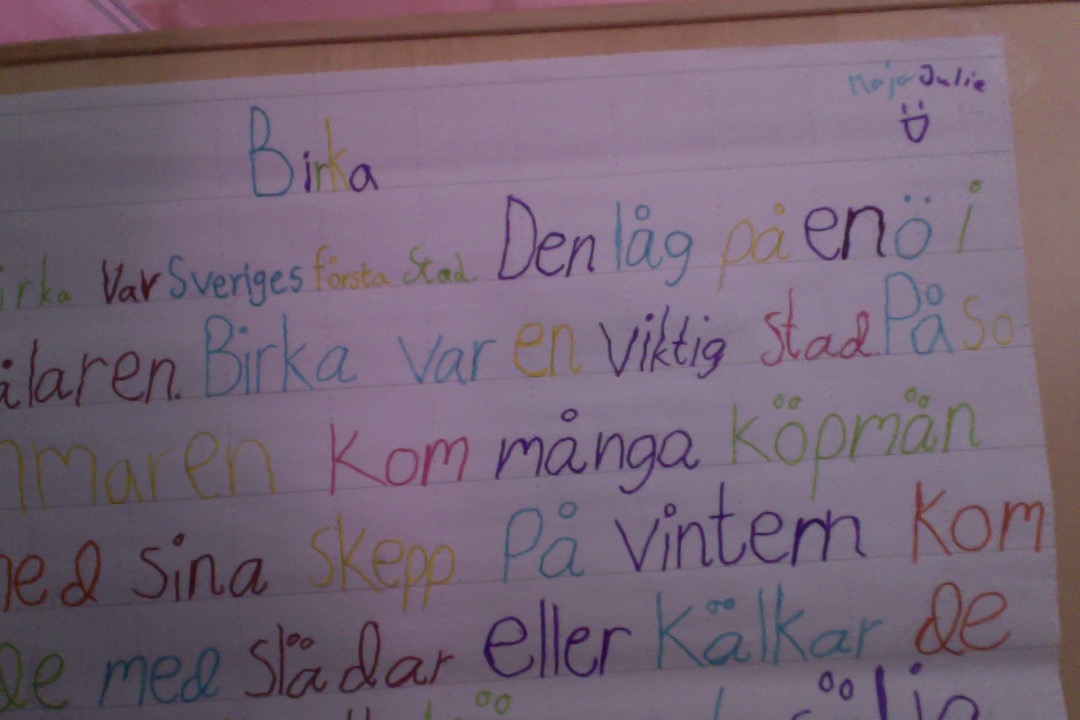 Maja Julie
Birka
irka Var Sveriges första Stad. Den låg på en ö i
älaren. Birka var en viktig stad. På so
mmaren kom många köpmän
med sina skepp På vintern kom
de med slädar eller kälkar de